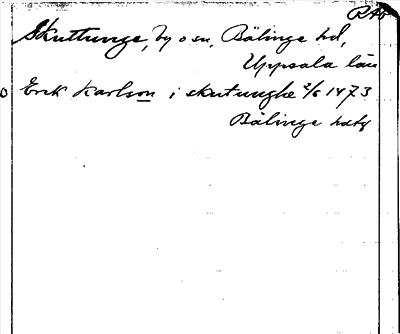 RAp
Skuttunge, by o sn, Bälinge hd,
Uppsala län
o Erik Karlson i skutunghe 2/6 1473
Bälinge hdtg